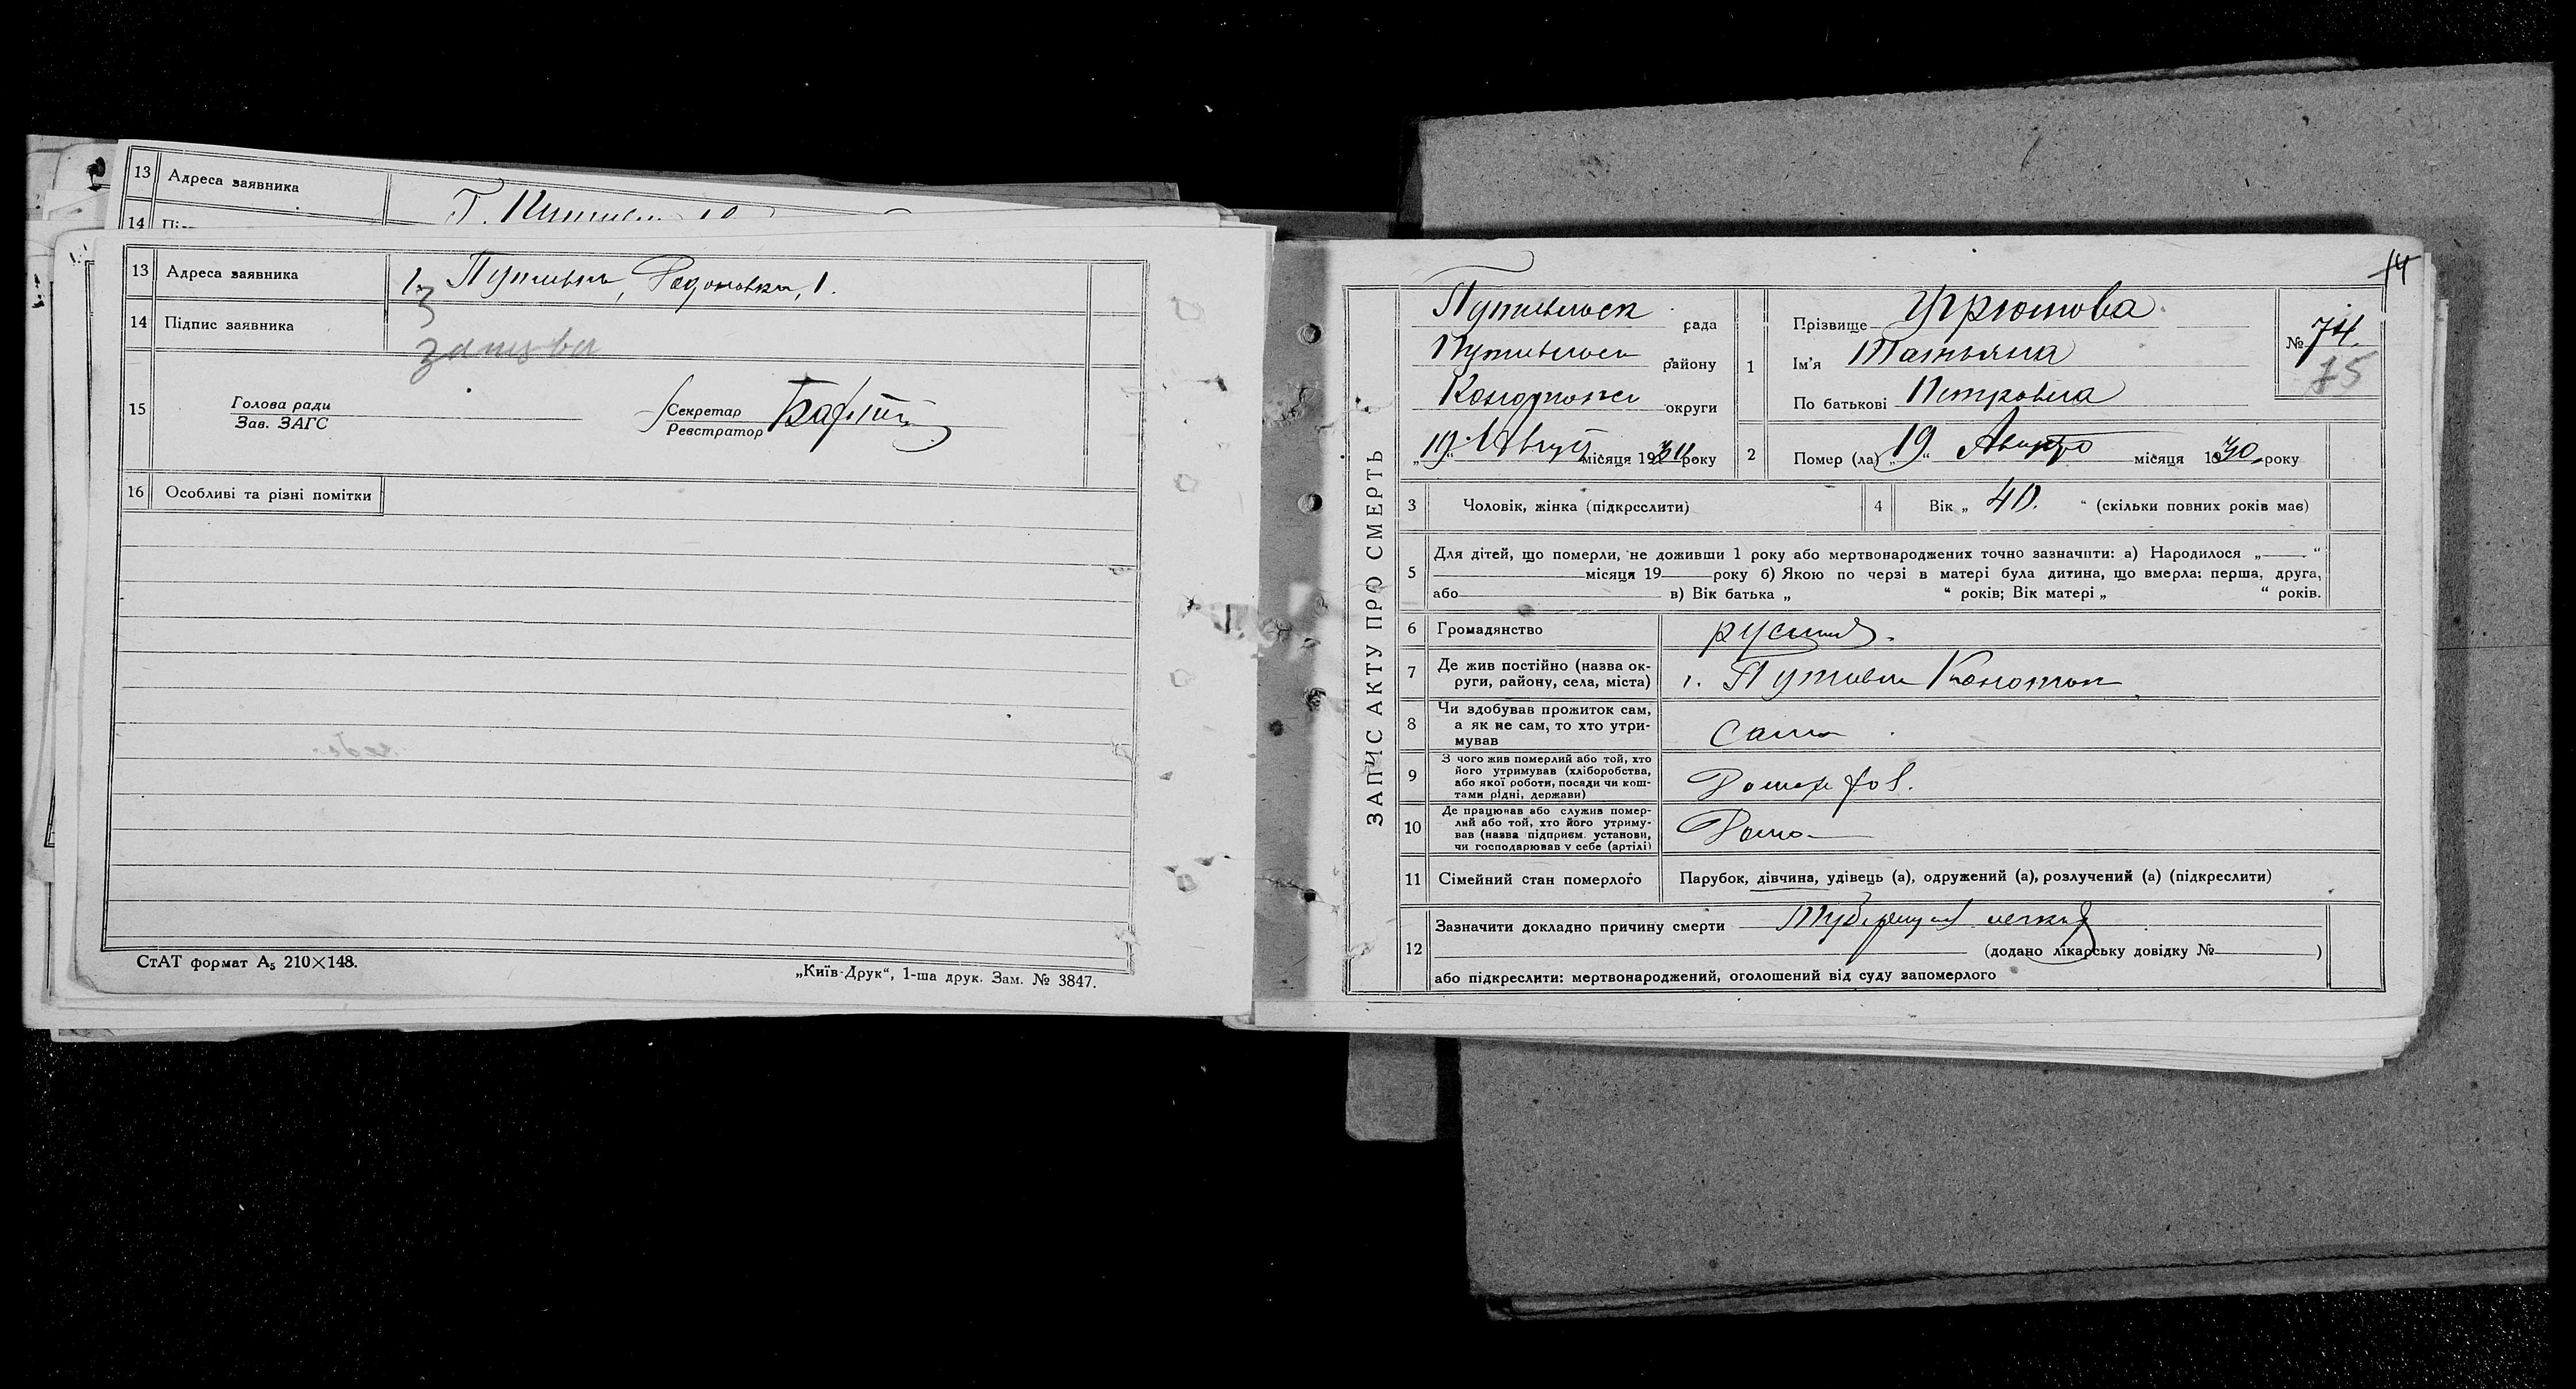 13 Адреса заявника
Г. Путивль
14
13 Адреса заявника г. Путивль, 1.
14 Підпис заявника
15 Голова ради
Зав. ЗАГС
Секретар
Реєстратор
16 Особливі та різні помітки
СтАТ формат А5 210×148.
„Київ-Друк“, 1-ша друк. Зам. № 3847.
14
ЗАПИС АКТУ ПРО СМЕРТЬ
Путивльск рада
Путивльск району
Конотопск округи
„19“ Август місяця 1930 року
1 Прізвище Угрюмова
Ім'я Татьяна
По батькові Петровна
№ 74.
75
2 Помер (ла) „19“ Августа місяця 1930 року
3 Чоловік, жінка (підкреслити)
4 Вік „ 40. “ (скільки повних років має)
5 Для дітей, що померли, не доживши 1 року або мертвонароджених точно зазначити: а) Народилося „ “
місяця 19 року б) Якою по черзі в матері була дитина, що вмерла: перша, друга,
або в) Вік батька „ “ років; Вік матері „ “ років.
6 Громадянство русская.
7 Де жив постійно (назва ок-
руги, району, села, міста) г. Путивль Конотоп
8 Чи здобував прожиток сам,
а як не сам, то хто утри-
мував сама
9 З чого жив померлий або той, хто
його утримував (хліборобства,
або якої роботи, посади чи кош-
тами рідні, держави)
10 Де працював або служив помер-
лий або той, хто його утриму-
вав (назва підприєм. установи,
чи господарював у себе (артілі) Дома
11 Сімейний стан померлого Парубок, дівчина, удівець (а), одружений (а), розлучений (а) (підкреслити)
12 Зазначити докладно причину смерти Туберкулез легких
(додано лікарську довідку № )
або підкреслити: мертвонароджений, оголошений від суду запомерлого